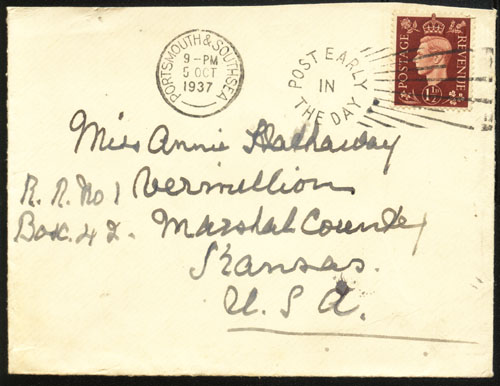 PORTSMOUTH & SOUTHSEA
9-PM
5 OCT
1937
POST EARLY
IN
THE DAY
POSTAGE
REVENUE
1½D
Miss Annie Hathaway
R. R. No 1 Vermillion
Box. 42. Marshal County
Kansas.
U. S. A.